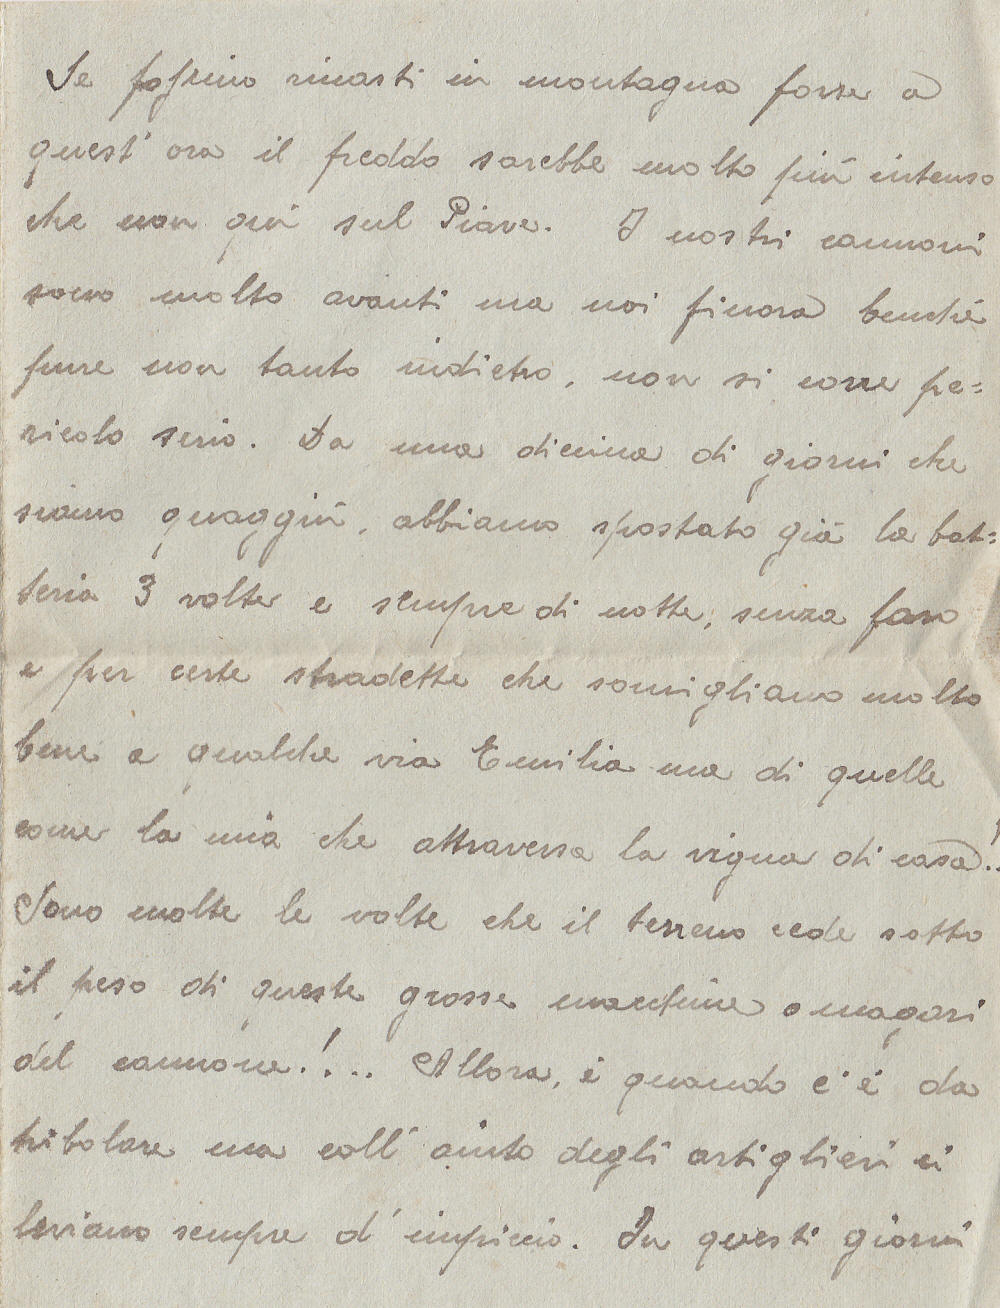 Se fossimo rimasti in montagna forse a
quest'ora il freddo sarebbe molto più intenso
che non qui sul Piave. I nostri cannoni
sono molto avanti ma noi finora benchè
pure non tanto indietro, non si corre pe=
ricolo serio. Da una diecina di giorni che
siamo quaggiù, abbiamo spostato già la bat=
teria 3 volte e sempre di notte, senza faro
e per certe stradette che somigliano molto
bene a qualche via Emilia ma di quelle
come la mia che attraversa la vigna di casa..
Sono molte le volte che il terreno cede sotto
il peso di queste grosse macchine o magari
del cannone!... Allora, è quando c'è da
tribolare ma coll'aiuto degli artiglieri ci
leviamo sempre d'impiccio. In questi giorni